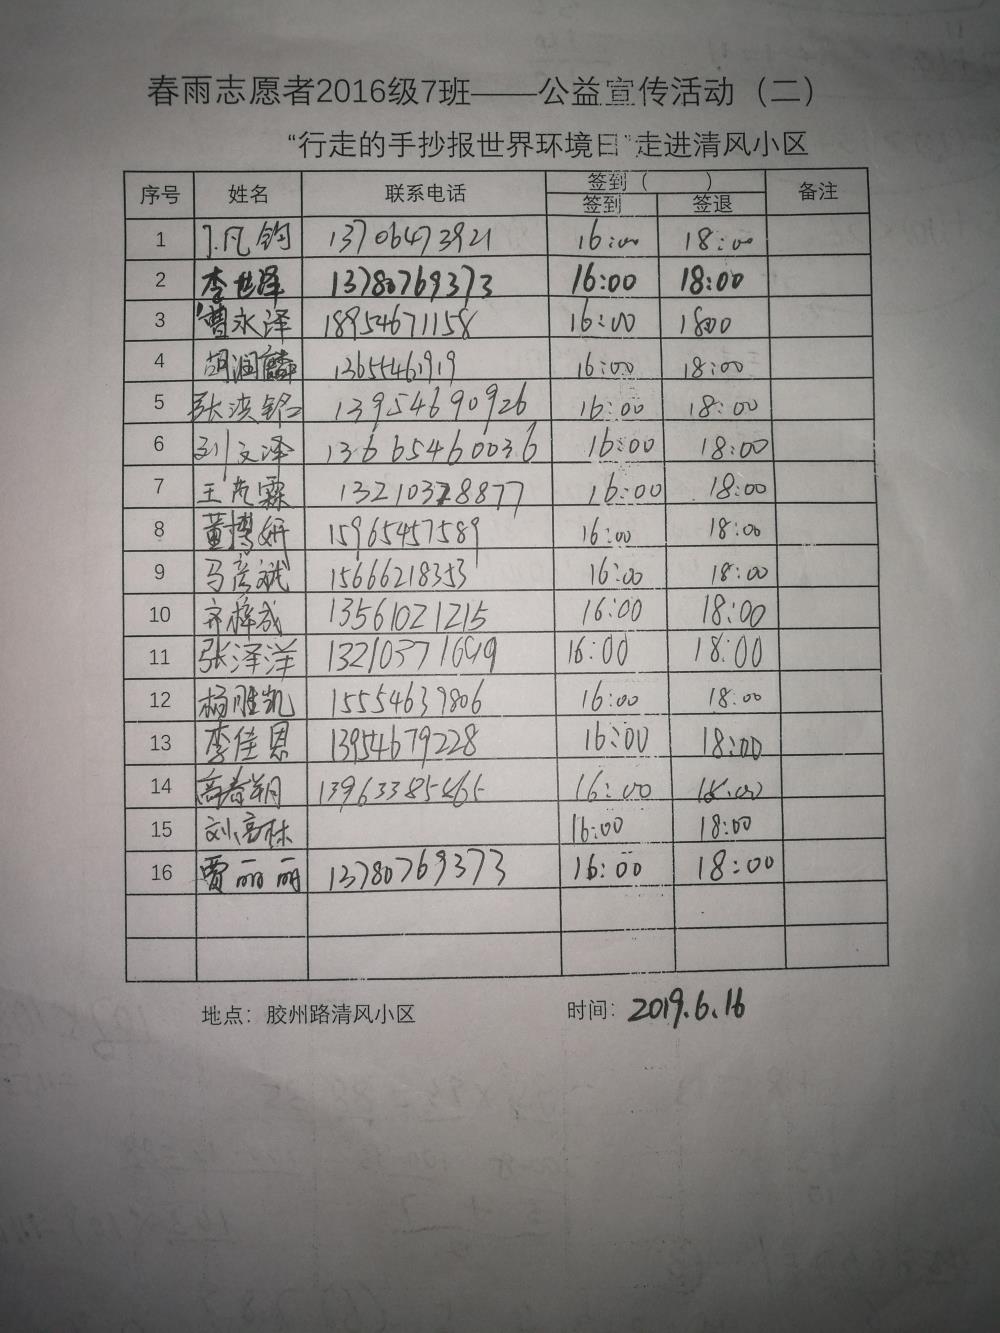 春雨志愿者2016级7班——公益宣传活动（二）
“行走的手抄报世界环境日”走进清风小区
序号 姓名 联系电话 签到（ ） 备注
签到 签退
1 凡钧 13706473921 16:00 18:00
2 李世泽 13780769373 16:00 18:00
3 曹永泽 18954671158 16:00 1800
4 胡润麟 13655461919 16:00 18:00
5 张洪铭 13954690926 16:00 18:00
6 刘文泽 13665460036 16:00 18:00
7 王 霖 13210328877 16:00 18:00
8 董博妍 15965457589 16:00 18:00
9 马彦斌 15666218353 16:00 18:00
10 齐梓成 13561021215 16:00 18:00
11 张泽洋 13210371699 16:00 18:00
12 杨胜凯 15554639806 16:00 18:00
13 李佳恩 13954679228 16:00 18:00
14 高春朔 13963385465 16:00 18:00
15 刘高林 16:00 18:00
16 贾丽丽 13780769373 16:00 18:00
地点：胶州路清风小区 时间：2019.6.16